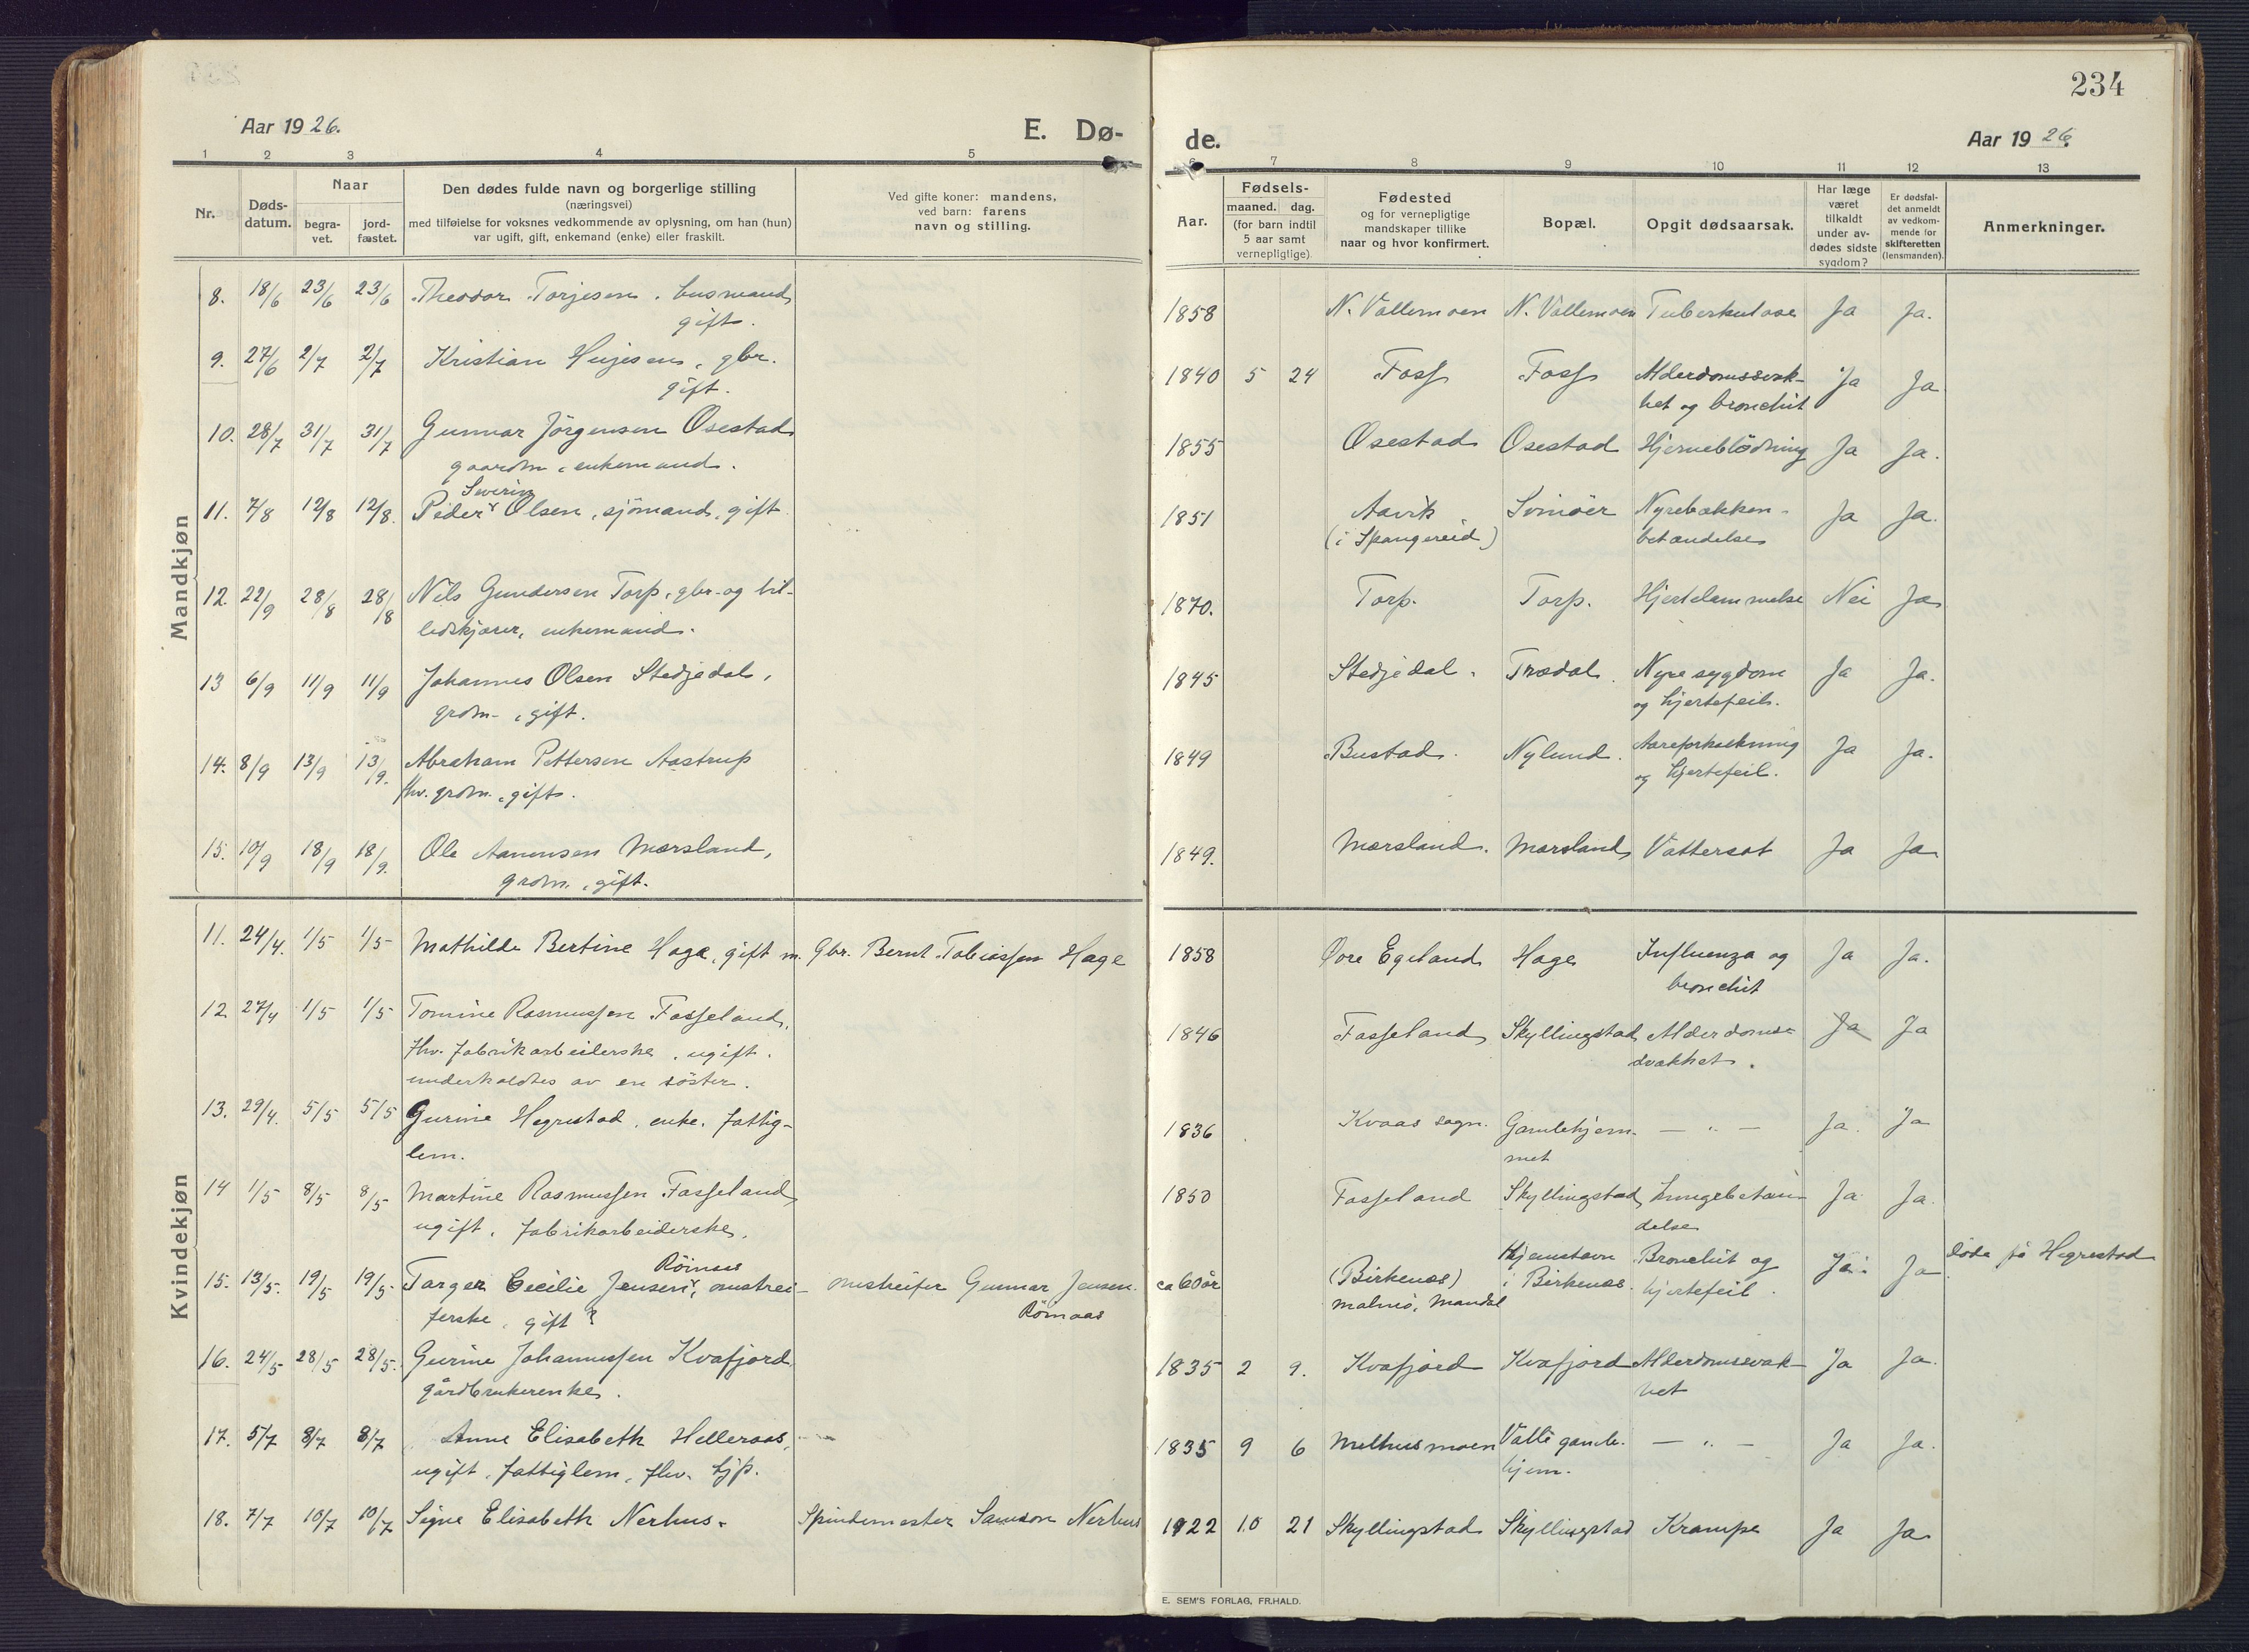 234
Aar 1926.
E. Dø-
de.
Aar 1926.
1 2 3 4 5
6 7 8 9 10 11 12 13
Nr.
Døds-
datum.
Naar
begra-
vet.
jord-
fæstet.
Den dødes fulde navn og borgerlige stilling
(næringsvei)
med tilføielse for voksnes vedkommende av oplysning, om han (hun)
var ugift, gift, enkemand (enke) eller fraskilt.
Ved gifte koner: mandens,
ved barn: farens
navn og stilling.
Aar.
Fødsels-
maaned. dag.
(for barn indtil
5 aar samt
vernepligtige).
Fødested
og for vernepligtige
mandskaper tillike
naar og hvor konfirmert.
Bopæl.
Opgit dødsaarsak.
Har læge
været
tilkaldt
under av-
dødes sidste
sygdom?
Er dødsfal-
det anmeldt
av vedkom-
mende for
skifteretten
(lensmanden).
Anmerkninger.
Mandkjøn
8. 18/6 23/6 23/6 Theodor Torjesen, husmand, 1858 N. Vallemoen N. Vallemoen Tuberkulose Ja Ja.
gift.
9. 27/6 2/7 2/7 Kristian Hujesen, gbr. 1840 5 24 Foss Foss Alderdomssvak- Ja Ja
gift. het og bronchit
10. 28/7 31/7 31/7 Gunnar Jörgensen Osestad 1855 Osestad Osestad Hjerneblödning Ja Ja.
gaardm., enkemand.
Severin
11. 7/8 12/8 12/8. Peder Olsen, sjömand, gift. 1851 Aavik Svinöer Nyrebækken- Ja Ja.
(i Spangereid) betændelse
12. 22/9 28/8 28/8 Nils Gundersen Torp, gbr. og bil- 1870. Torp. Torp. Hjertelammelse Nei Ja
ledskjærer, enkemand.
13 6/9 11/9 11/9 Johannes Olsen Stedjedal, 1845 Stedjedal. Trædal. Nyresygdom Ja Ja.
grdm., gift. og hjertefeil.
14. 8/9 13/9 13/9. Abraham Pettersen Aastrup 1849 Bustad. Nylund. Aareforkalkning Ja Ja.
fhv. grdm., gift. og hjertefeil.
15. 10/9 18/9 18/9. Ole Aanensen Mørsland, 1849. Mørsland. Mørsland Vattersot Ja Ja
grdm., gift.
Kvindekjøn
11. 24/4. 1/5 1/5 Mathilde Bertine Hage, gift m. Gbr. Bernt Tobiassen Hage 1858 Övre Egeland Hage Influenza og Ja Ja.
bronchit
12 27/4 1/5 1/5 Tomine Rasmussen Fosseland, 1846 Fosseland Skyllingstad Alderdoms- Ja Ja
fhv. fabrikarbeiderske, ugift. svakhet.
underholdtes av en söster.
13. 29/4. 5/5 5/5 Gurine Hegrestad, enke. fattig- 1836 Kvaas sogn. Gamlehjem- — " — Ja. Ja
lem. met
14 1/5 8/5 8/5 Martine Rasmussen Fosseland 1850 Fosseland Skyllingstad Lungebetæn- Ja Ja.
ugift, fabrikarbeiderske. delse
Röinaas
15. 13/5. 19/5 19/5 Targer Cecilie Jensen, omstrei- omstreifer Gunnar Jensen. ca 60 år (Birkenes) Hjemstavn Bronchit og Ja. Ja döde på Hegrestad
ferske, gift? Röinaas Malmö, Mandal i Birkenes. hjertefeil.
16. 24/5 28/5 28/5. Gurine Johannessen Kvafjord 1835 2 9. Kvafjord Kvafjord Alderdomssvak- Ja Ja.
gårdbrukerenke. het
17. 5/7 8/7 8/7 Anne Elisabeth Helleraas, 1835 9 6 Melhusmoen Valle gamle- — " — Ja Ja.
ugift, fattiglem, fhv. tjp. hjem.
18. 7/7 10/7 10/7 Signe Elisabeth Nerhus. Spindemester Samson Nerhus 1922 10 21 Skyllingstad Skyllingstad Krampe Ja Ja.
E. SEM'S FORLAG, FR.HALD.